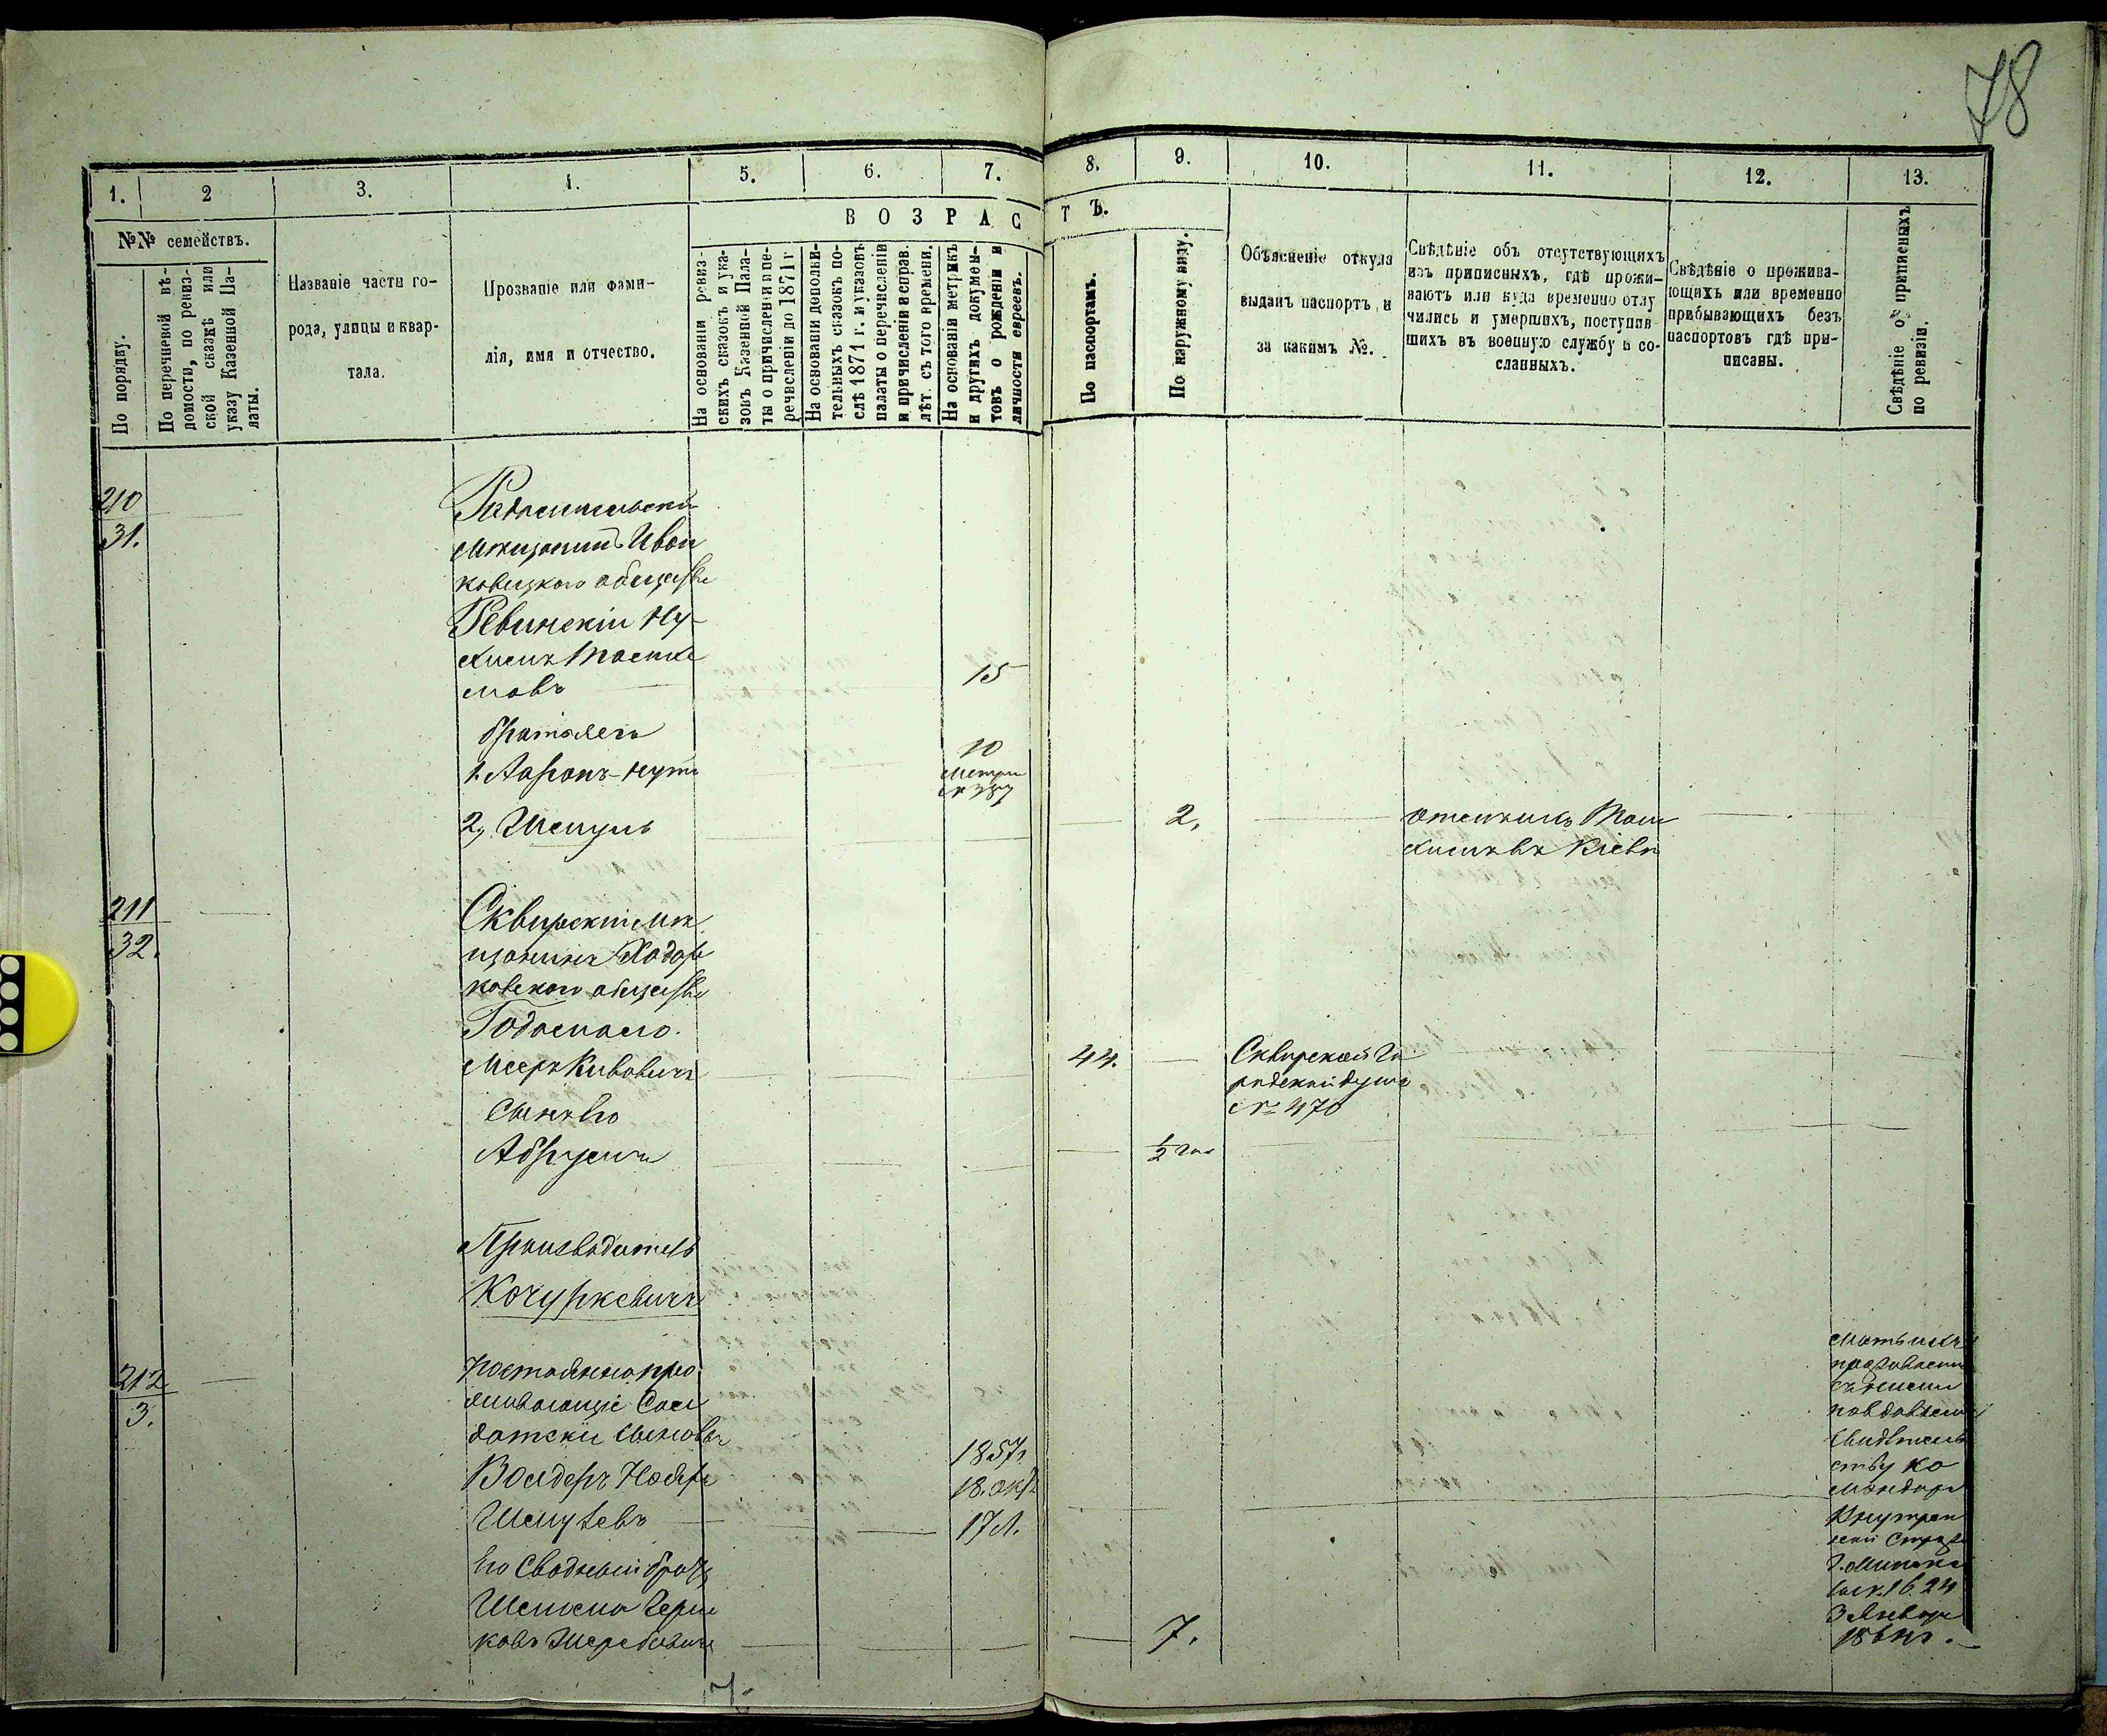 78
1.
2
3.
4.
5.
6.
7.
8.
9.
10.
11.
12.
13.
№№ семействъ.
По порядку.
По перечневой вѣ-
домости, по ревиз-
ской сказкѣ или
указу Казенной Па-
латы.
Названіе части го-
рода, улицы и квар-
тала.
Прозваніе или фами-
лія, имя и отчество.
ВОЗРАСТЪ.
На основаніи ревиз-
скихъ сказокъ и ука-
зовъ Казенной Пала-
ты о причисленіи и пе-
речисленіи до 1871 г
На основаніи дополни-
тельныхъ сказокъ по-
слѣ 1871 г. и указовъ
палаты о перечисленіи
и причисленіи и справ.
лѣт. съ того времени.
На основаніи метрикъ
и другихъ докумен-
товъ о рожденіи и
личности евреевъ.
По паспортамъ.
По наружному виду.
Объясненіе откуда
выданъ паспортъ и
за какимъ №.
Свѣдѣніе объ отсутствующихъ
изъ приписныхъ, гдѣ прожи-
ваютъ или куда временно отлу
чились и умершихъ, поступив-
шихъ въ военную службу и со-
сланныхъ.
Свѣдѣніе о прожива-
ющихъ или временно
прибывающихъ безъ
паспортовъ гдѣ при-
писаны.
Свѣдѣніе о приписныхъ
по ревизіи.
210
31.
мѣщанинъ Иван
ковецкаго общества
Ревинскій Ну-
мовъ
15
братья его
1. Ааронъ-Нута
10
Метри
№ 387
2, Шмуль
2,
отецъ ихъ
въ Кіевѣ
211
32.
Сквирскій мѣ
щанинъ Ходор
ковскаго общества
Мееръ Кивовичъ
44.
Сквирской Го
родской думы
№ 470
Сынъ Его
Абрумъ
1/2 года
Производитель
Кочуркевичъ
212
3.
Постоянно про
живающіе Сол
датскіе сыновья
Волдеръ
Шмулевъ
1857 г
18. окт
17 л.
Его Сводный братъ
7.
Мать ихъ
проживаетъ
съ ними
по вдовьему
свидѣтель
ству ко
мандира
Внутрен
ней Стражи
3 Января
7.